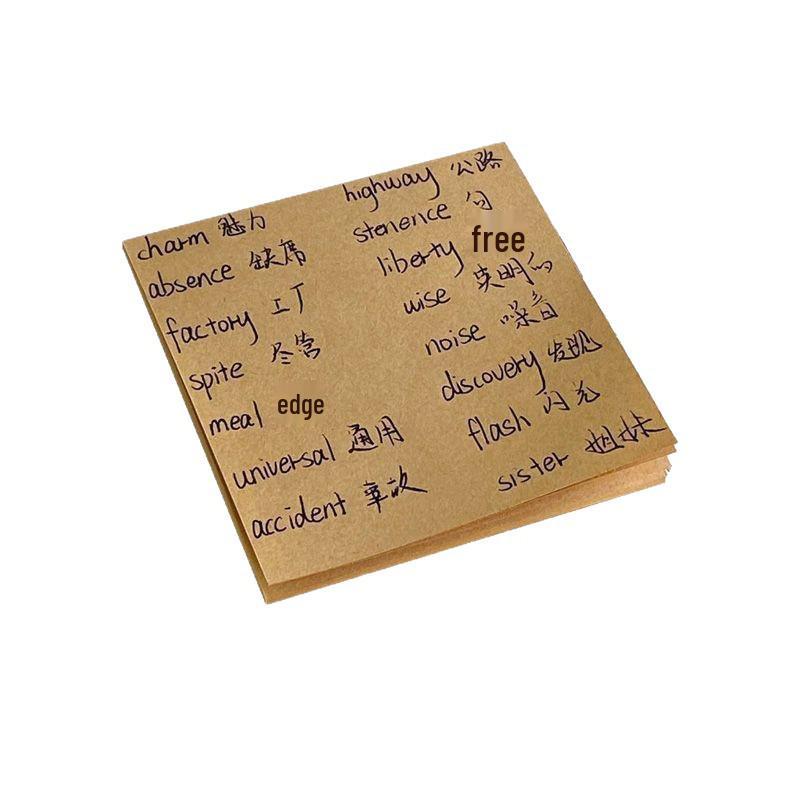 charm 魅力
absence 缺席
factory 工厂
spite 尽管
meal edge
universal 通用
accident 事故
highway 公路
stenence 句
liberty free
wise 英明的
noise 噪音
discovery 发现
flash 闪光
sister 姐妹